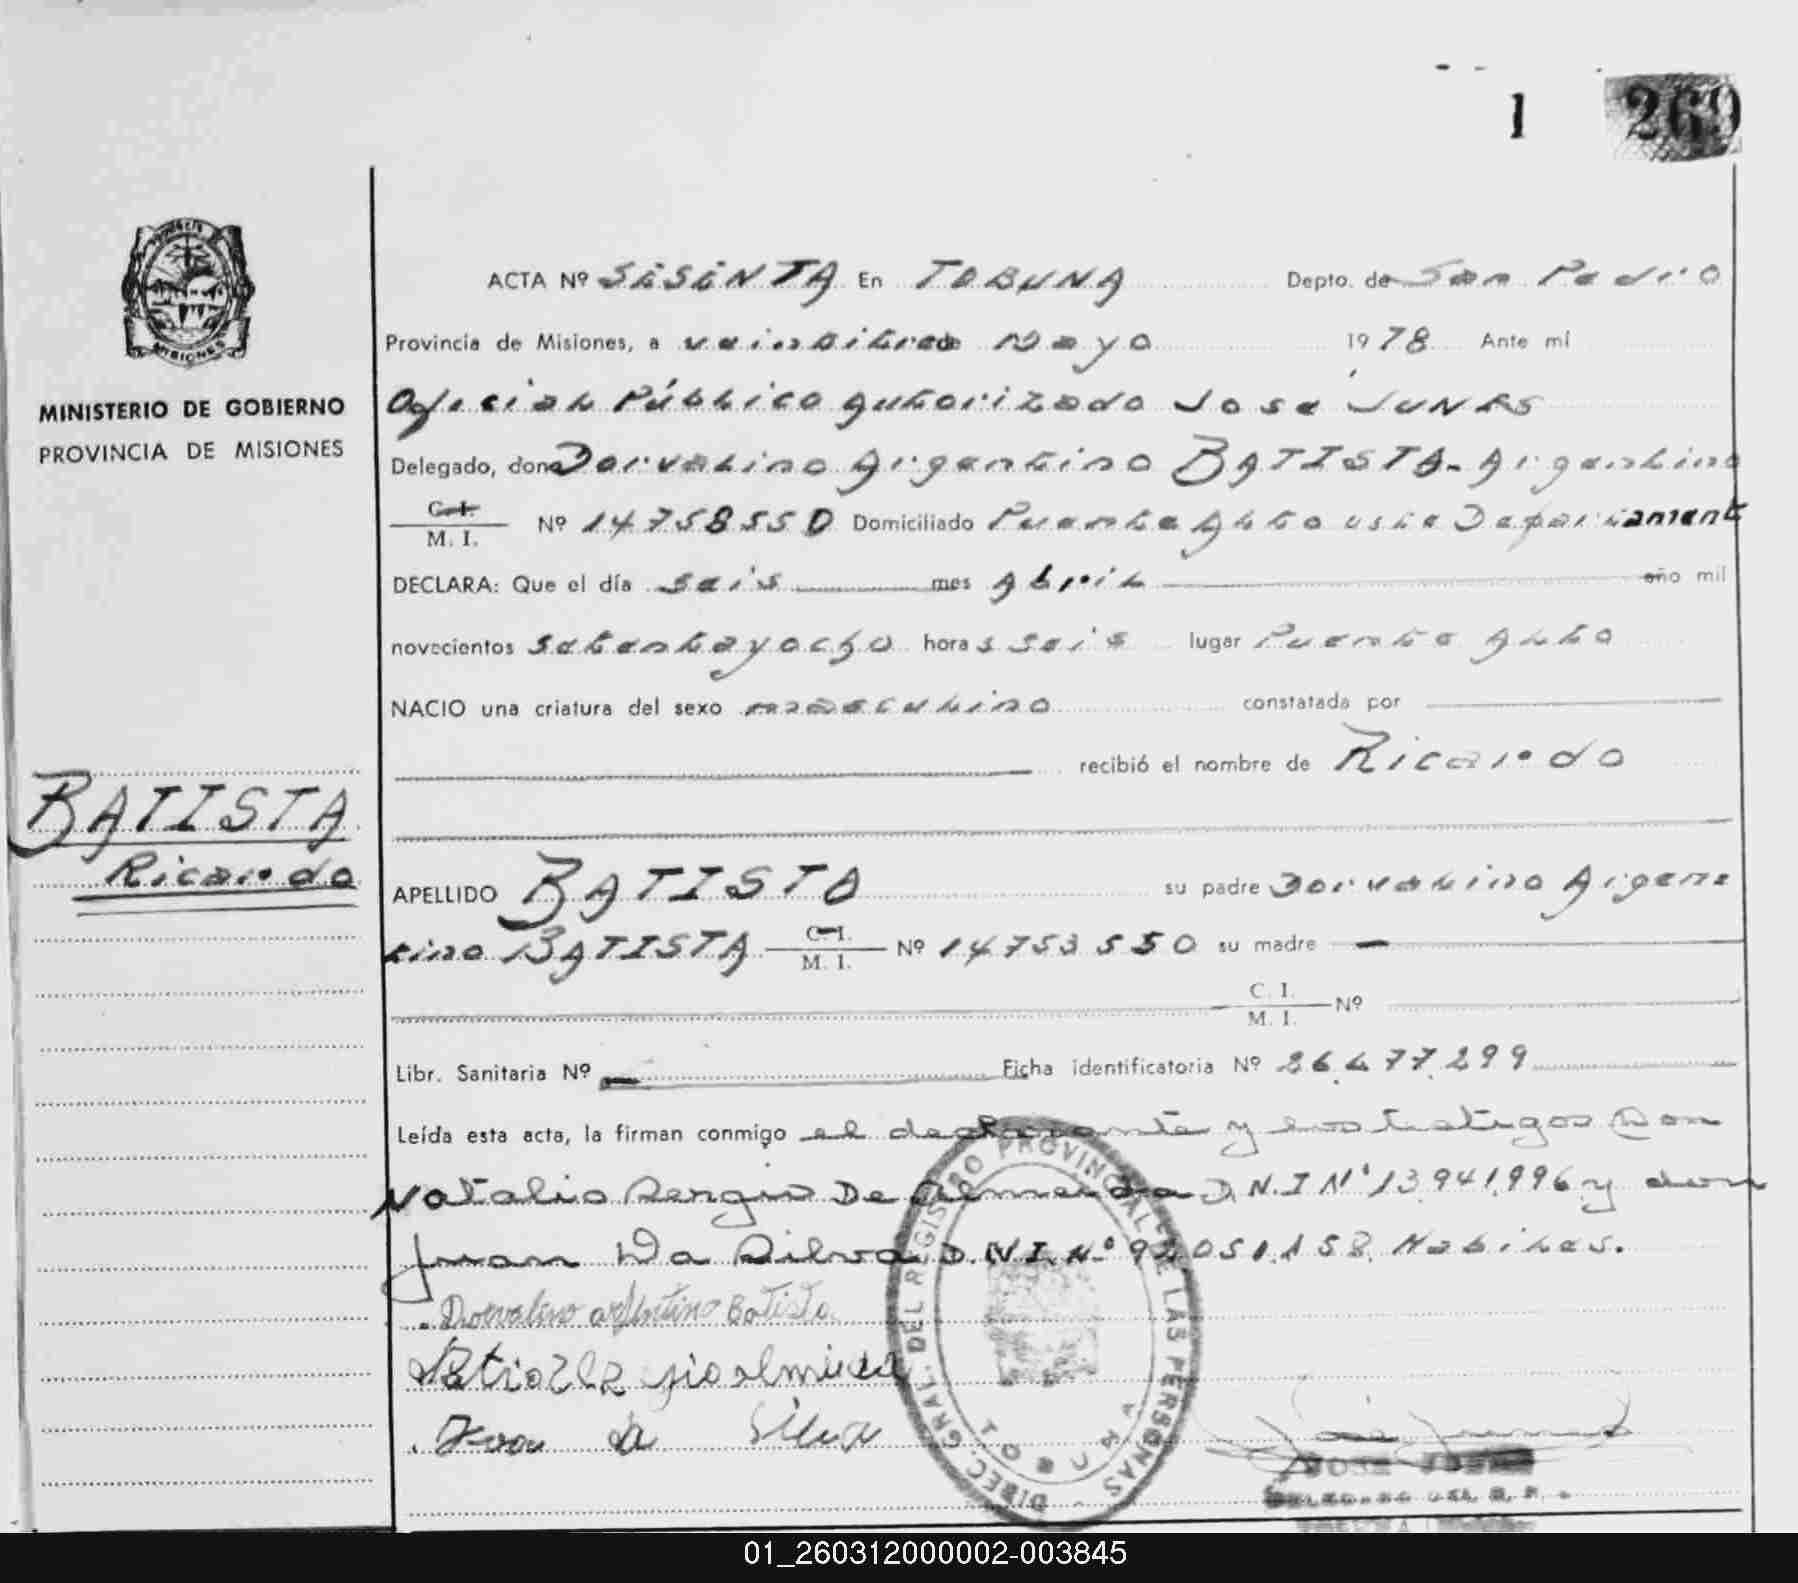 1 269
ACTA Nº SESENTA En TOBUNA Depto. de San Pedro
Provincia de Misiones, a veintitres de Mayo 1978 Ante mí
MINISTERIO DE GOBIERNO
PROVINCIA DE MISIONES
Oficial Público Autorizado José JUNES
Delegado, don Dorvalino Argentino BATISTA - Argentino
C. I.
M. I. Nº 14758550 Domiciliado Puente Alto este Departament
DECLARA: Que el día seis mes Abril año mil
novecientos setentayocho horas seis lugar Puente Alto
NACIO una criatura del sexo masculino constatada por
recibió el nombre de Ricardo
BATISTA
Ricardo
APELLIDO BATISTA su padre Dorvalino Argen-
tino BATISTA C. I. M. I. Nº 14753550 su madre —
C. I.
M. I. Nº
Libr. Sanitaria Nº — Ficha identificatoria Nº 26.477.299
Leída esta acta, la firman conmigo el declarante y los testigos Don
Natalio Sergio De Almeida D.N.I Nº 13.941.996 y don
Juan Da Silva D.N.I. Nº 92.051.158 Habiles.
Dorvalino argentino Batista
Silva
DIREC. GRAL. DEL REGISTRO PROVINCIAL DE LAS PERSONAS
TOBUNA
JOSE
01_260312000002-003845